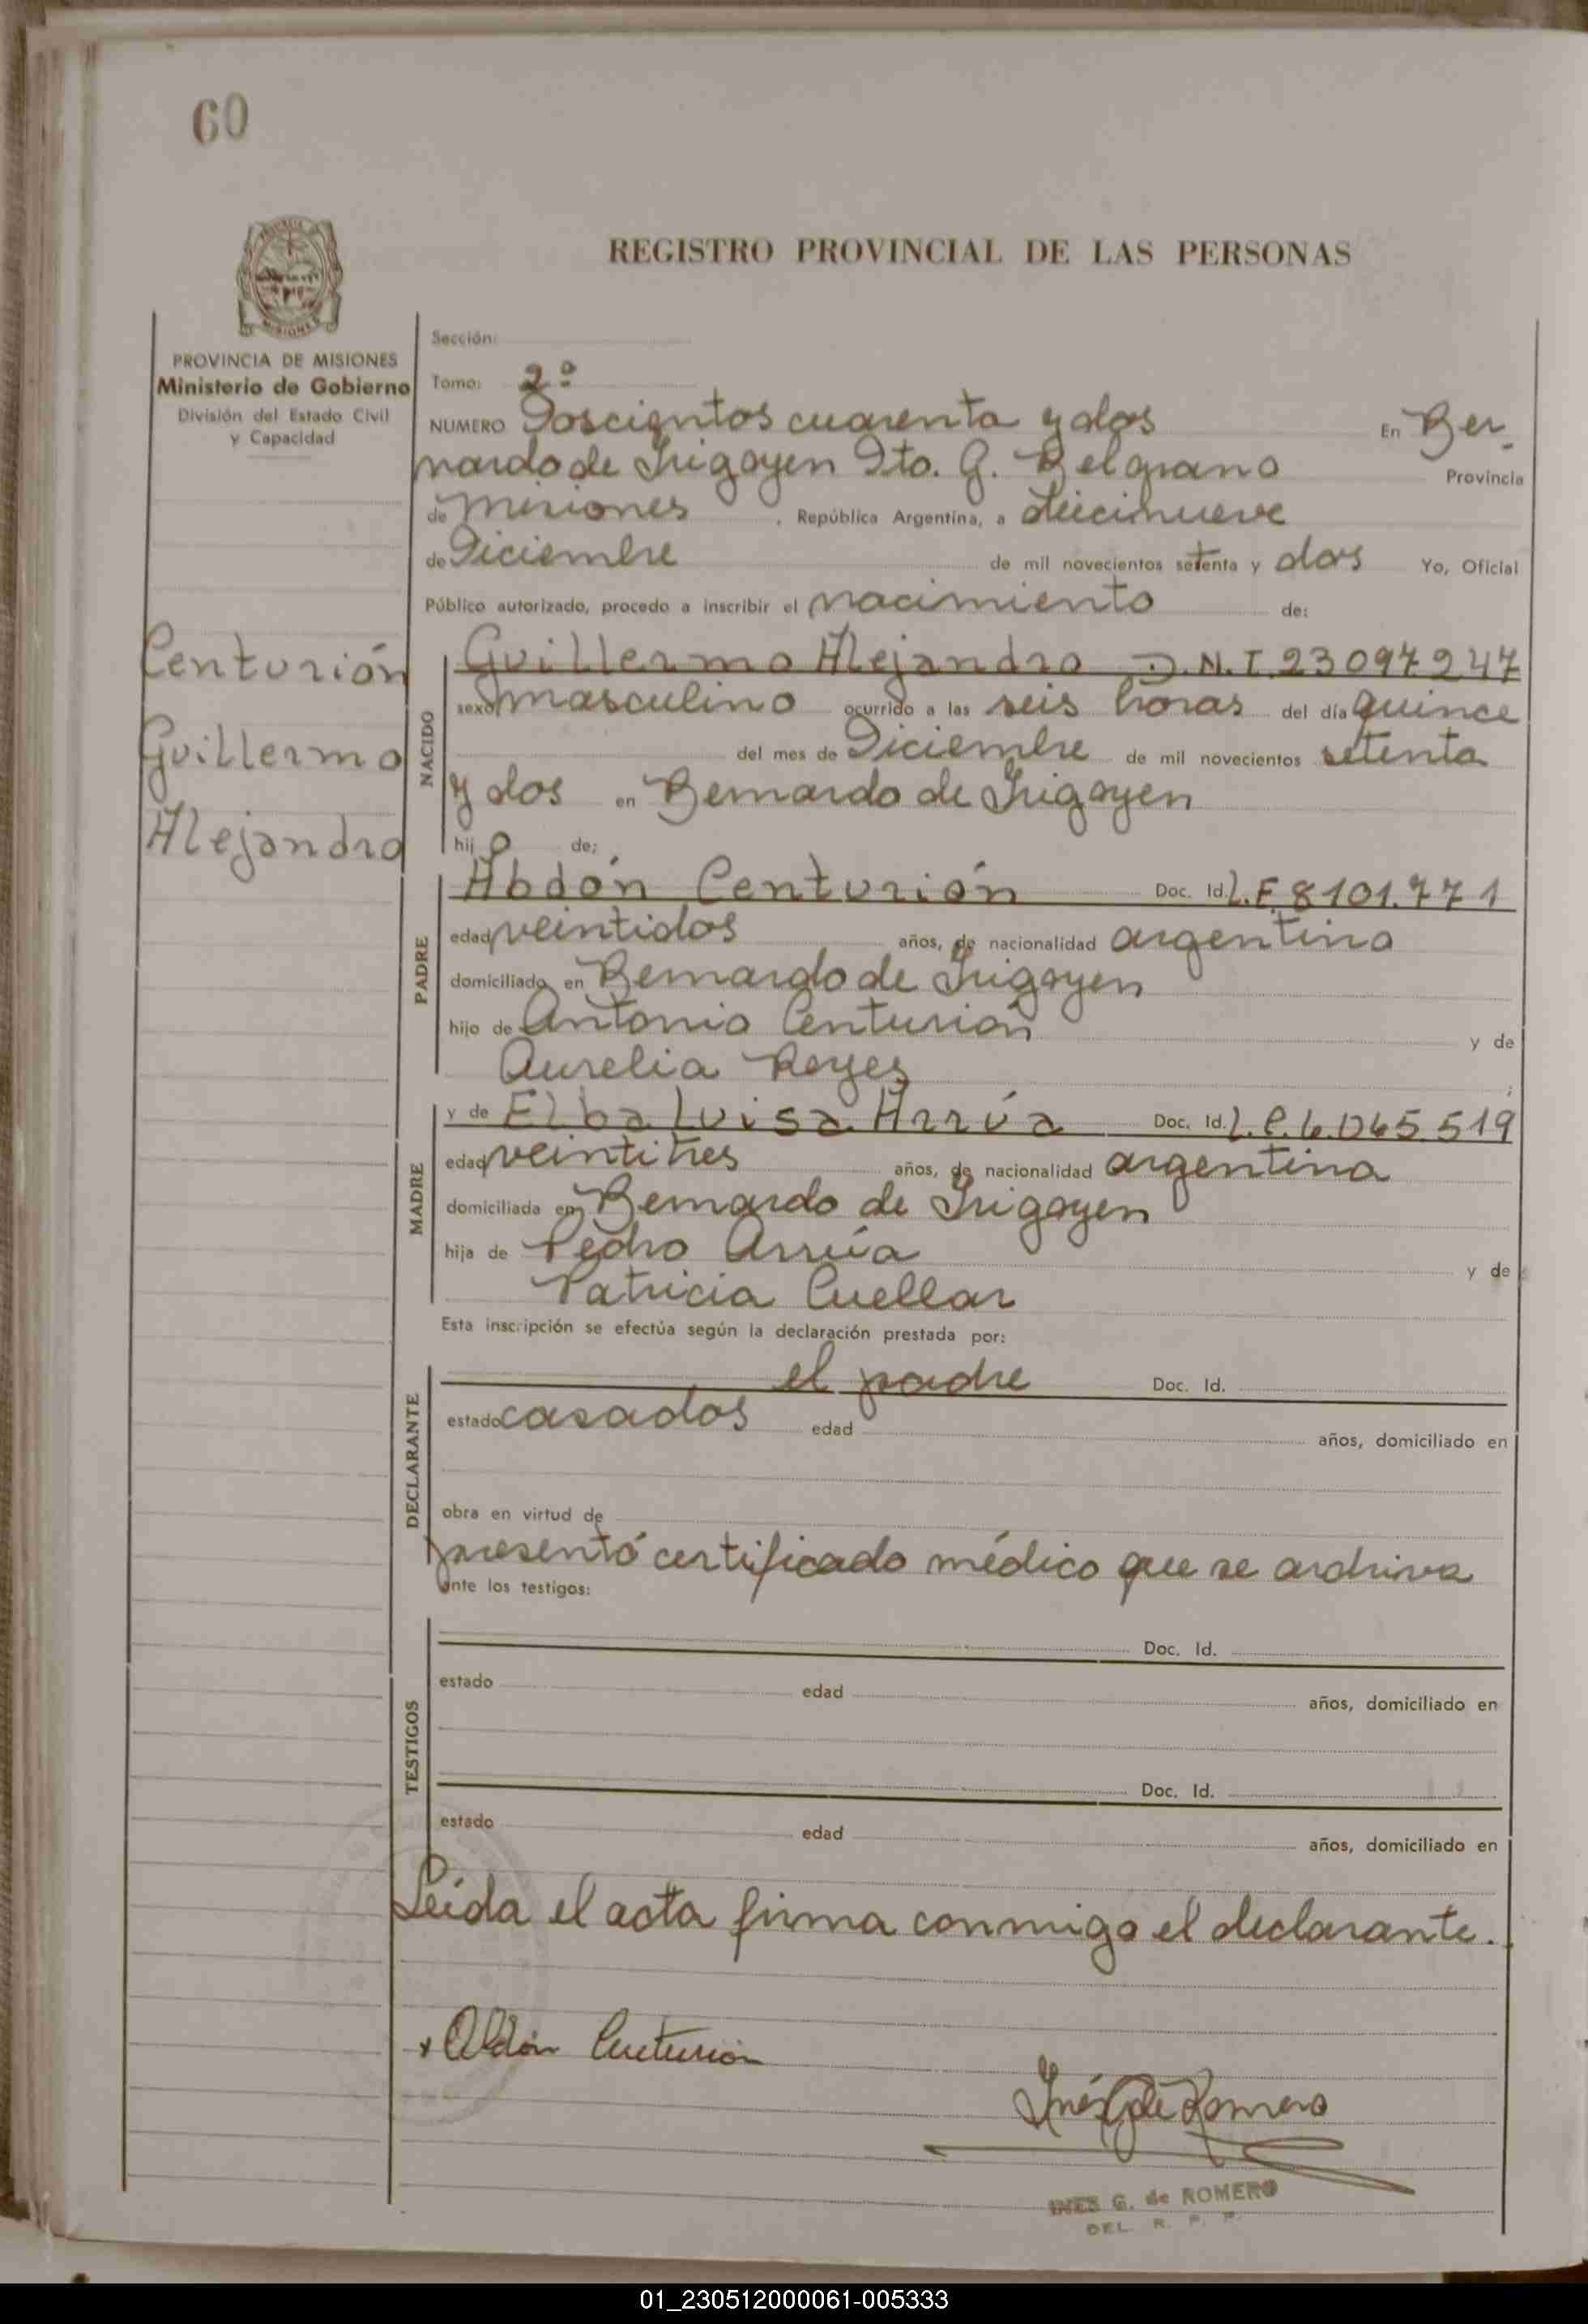 60
REGISTRO PROVINCIAL DE LAS PERSONAS
PROVINCIA DE MISIONES
Ministerio de Gobierno
División del Estado Civil
y Capacidad
Centurión
Guillermo
Alejandro
Sección:
Tomo: 2º
NUMERO Doscientos cuarenta y dos En Ber-
nardo de Irigoyen Dto. G. Belgrano Provincia
de Misiones , República Argentina, a diecinueve
de Diciembre de mil novecientos setenta y dos Yo, Oficial
Público autorizado, procedo a inscribir el nacimiento de:
NACIDO
Guillermo Alejandro D.N.I. 23097247
sexo masculino ocurrido a las seis horas del día quince
del mes de Diciembre de mil novecientos setenta
y dos en Bernardo de Irigoyen
hijo de:
PADRE
Abdón Centurión Doc. Id. L.E 8101.771
edad veintidos años, de nacionalidad argentina
domiciliado en Bernardo de Irigoyen
hijo de Antonio Centurión y de
Aurelia Reyes ;
MADRE
y de Elba Luisa Arrúa Doc. Id. L.C. 6.065.519
edad veintitres años, de nacionalidad argentina
domiciliada en Bernardo de Irigoyen
hija de Pedro Arrúa y de
Patricia Cuellar
Esta inscripción se efectúa según la declaración prestada por:
DECLARANTE
el padre Doc. Id.
estado casados edad años, domiciliado en
obra en virtud de
presentó certificado médico que se archiva
ante los testigos:
TESTIGOS
Doc. Id.
estado edad años, domiciliado en
Doc. Id.
estado edad años, domiciliado en
Leída el acta firma conmigo el declarante.
Abdón Centurión
Inés G de Romero
INES G. de ROMERO
DEL. R. P. P.
01_230512000061-005333